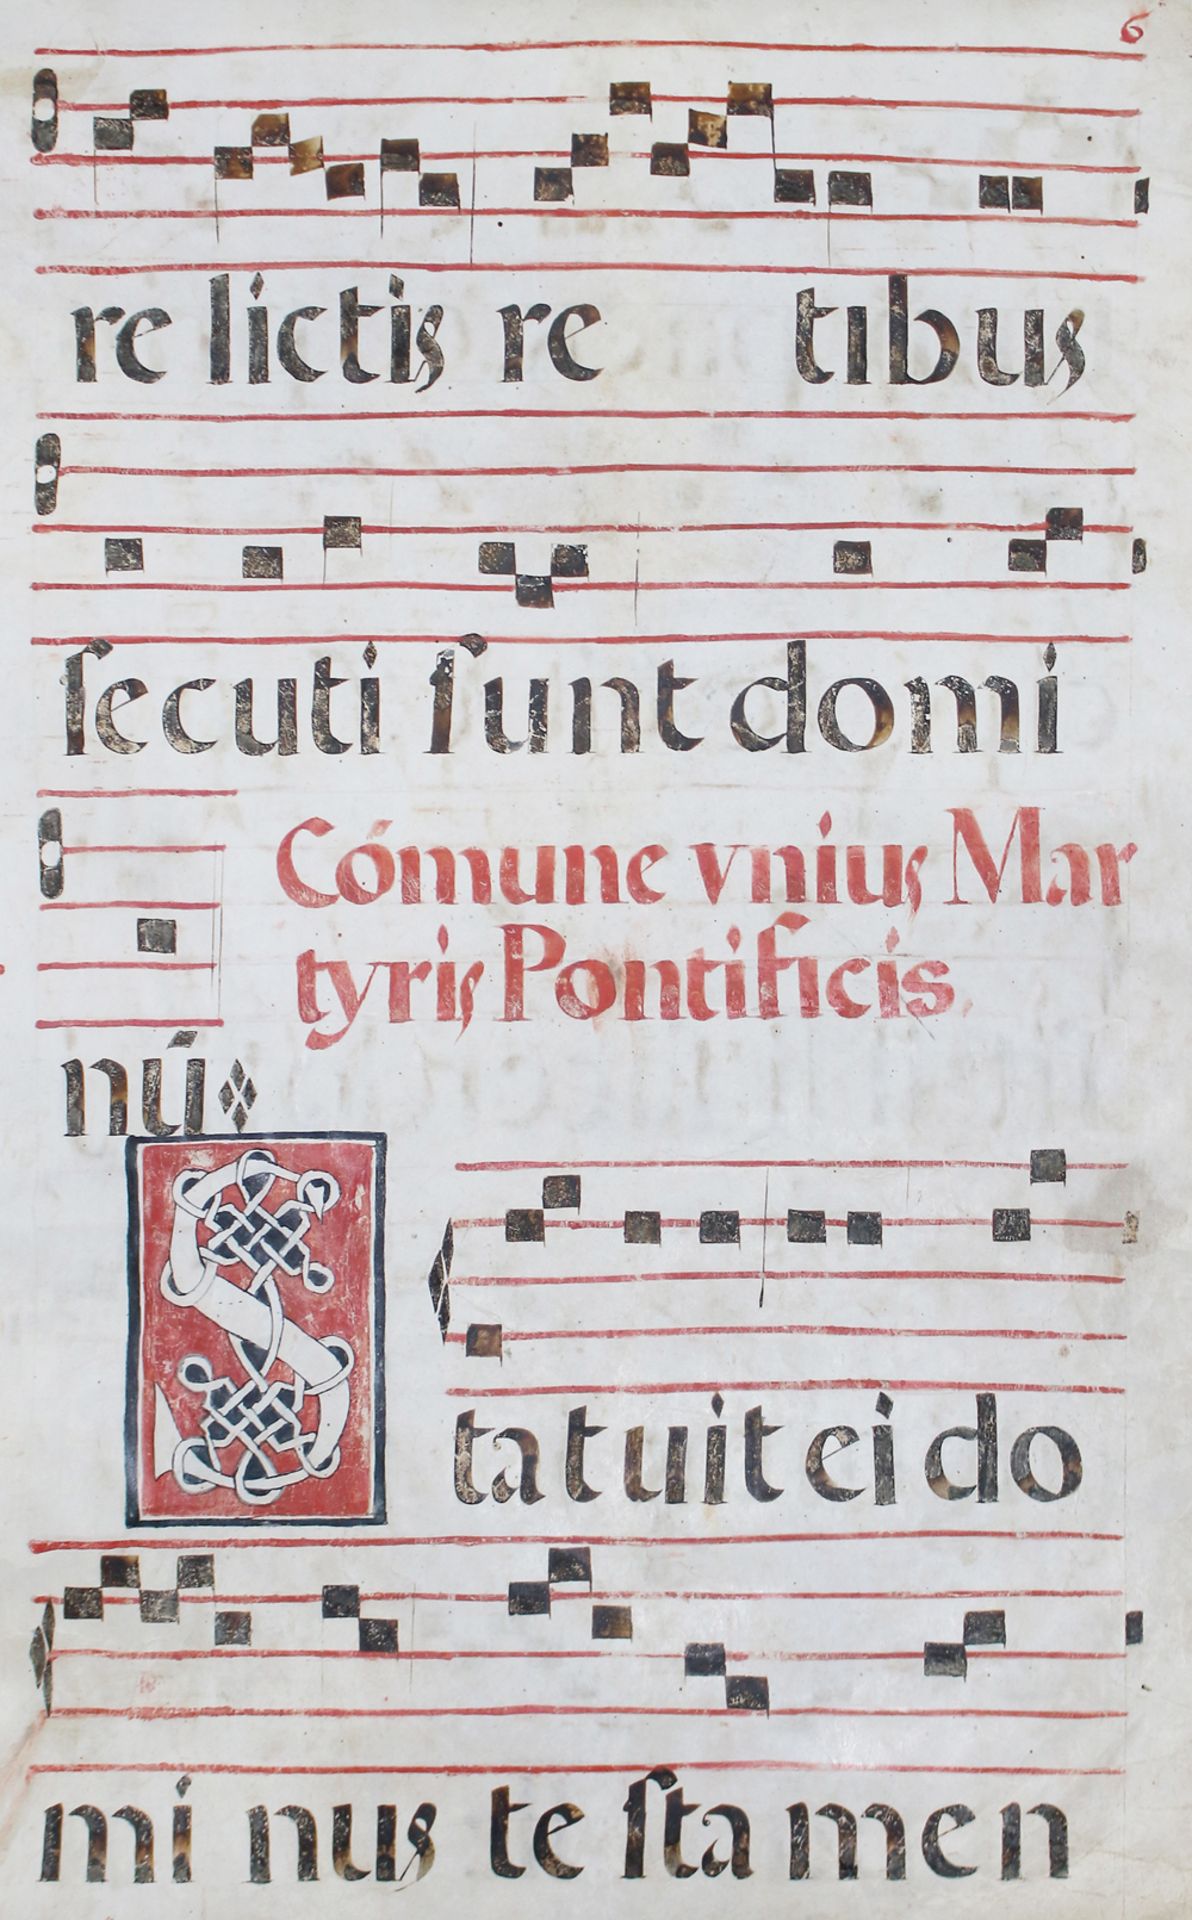 6
re lictis re tibus
ſecuti ſunt domi
Cómune vnius Mar
tyris Pontificis.
nú
S
tatuit ei do
mi nus te ſta men